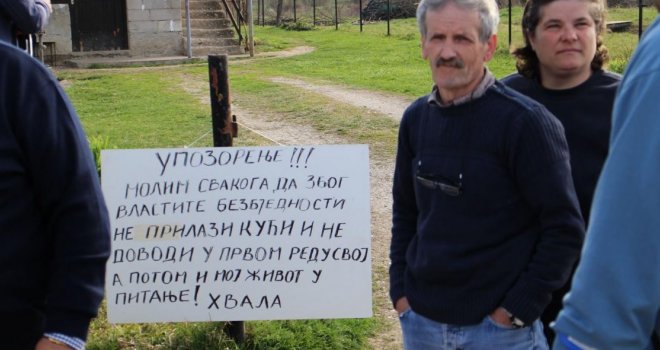 УПОЗОРЕЊЕ!!!
МОЛИМ СВАКОГА, ДА ЗБОГ
ВЛАСТИТЕ БЕЗБЈЕДНОСТИ
НЕ ПРИЛАЗИ КУЋИ И НЕ
ДОВОДИ У ПРВОМ РЕДУ СВОЈ
А ПОТОМ И МОЈ ЖИВОТ У
ПИТАЊЕ! ХВАЛА